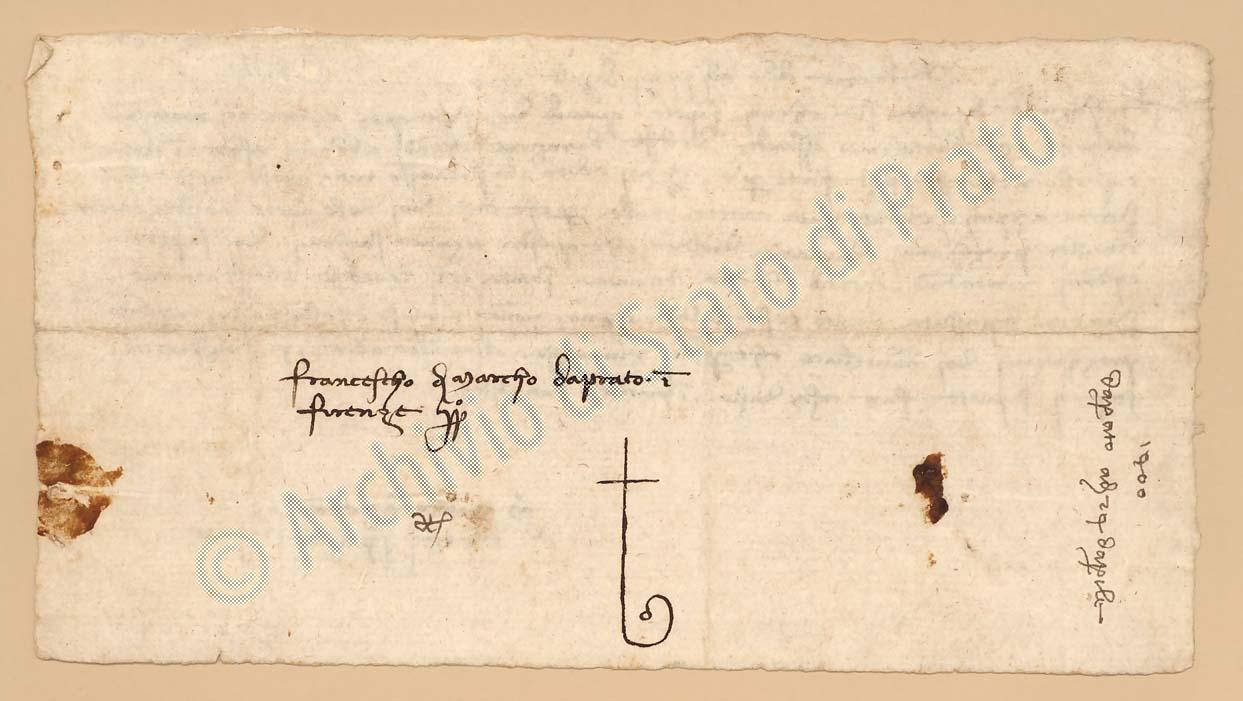 francescho di Marcho da prato in
firenze
da prato adì 24 d'aprile
1400
© Archivio di Stato di Prato